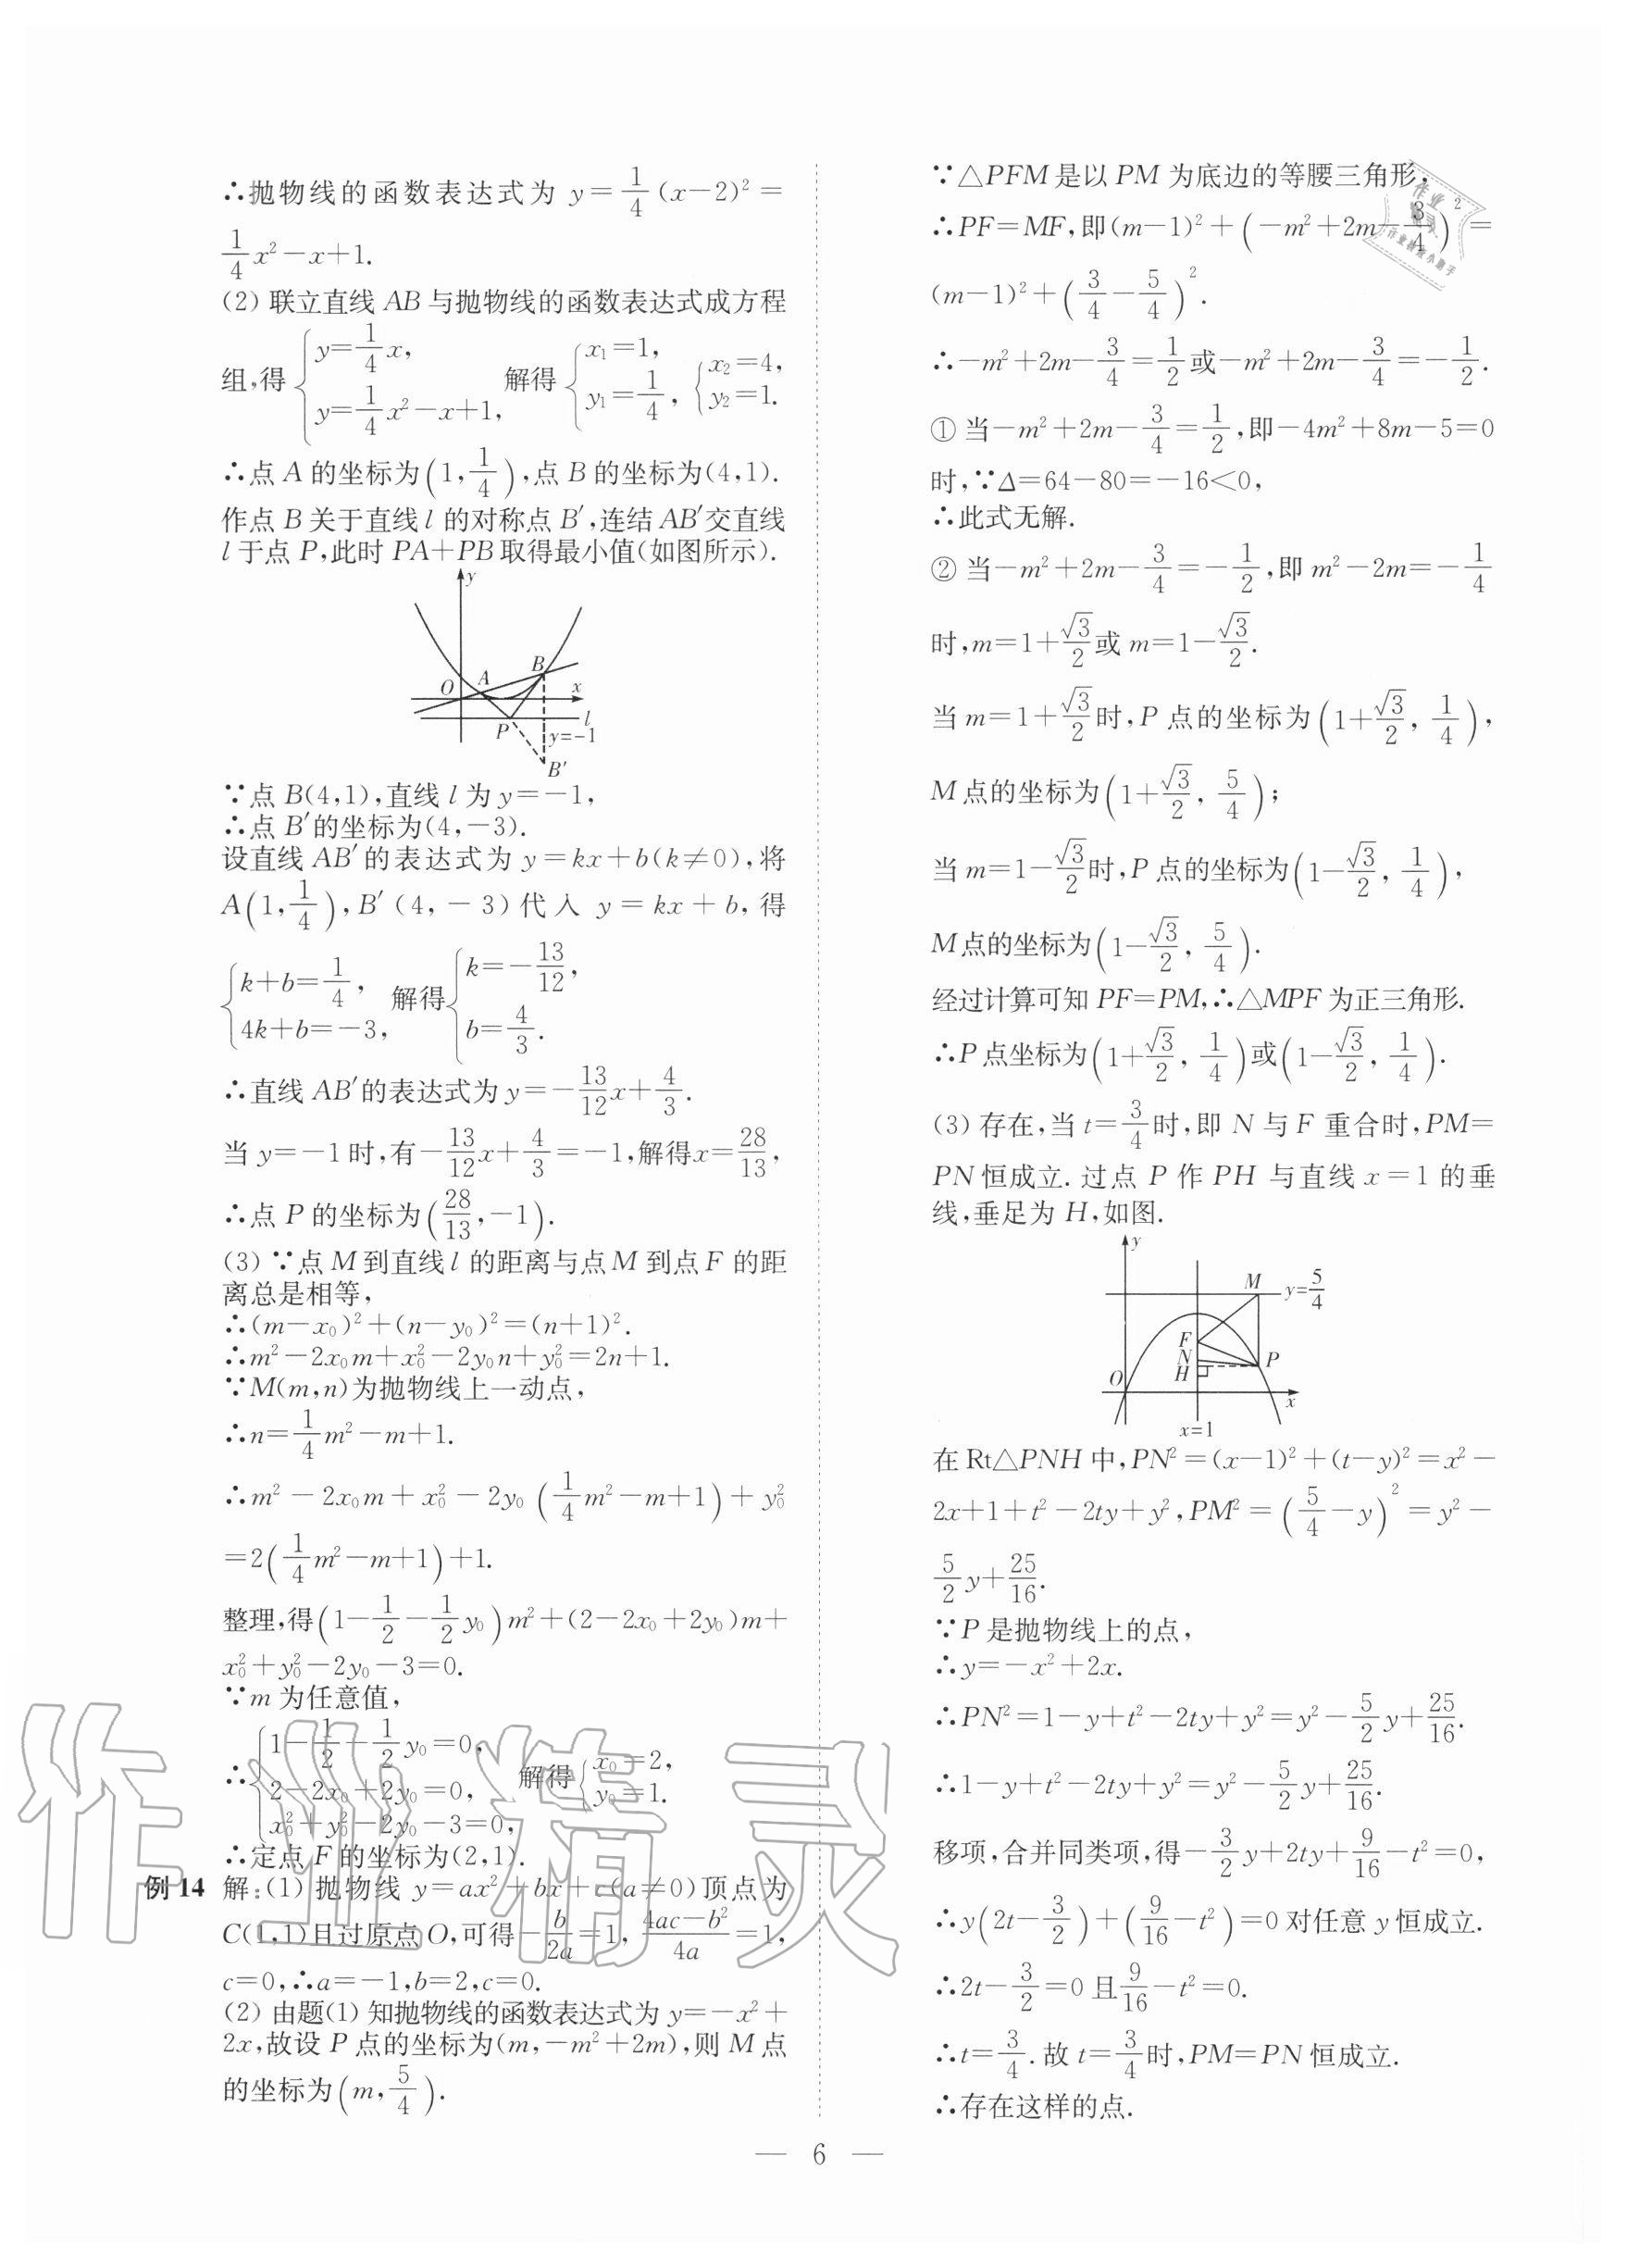 ∴抛物线的函数表达式为 y=1/4(x-2)²=
1/4x²-x+1.
(2) 联立直线 AB 与抛物线的函数表达式成方程
组,得{y=1/4x, y=1/4x²-x+1, 解得{x₁=1, y₁=1/4, {x₂=4, y₂=1.
∴点 A 的坐标为(1,1/4),点 B 的坐标为(4,1).
作点 B 关于直线 l 的对称点 B′,连结 AB′交直线
l 于点 P,此时 PA+PB 取得最小值(如图所示).
y
B
A
O
x
l
P
y=-1
B′
∵点 B(4,1),直线 l 为 y=-1,
∴点 B′的坐标为(4,-3).
设直线 AB′的表达式为 y=kx+b(k≠0),将
A(1,1/4),B′(4,-3)代入 y=kx+b,得
{k+b=1/4, 4k+b=-3, 解得{k=-13/12, b=4/3.
∴直线 AB′的表达式为 y=-13/12x+4/3.
当 y=-1 时,有-13/12x+4/3=-1,解得x=28/13,
∴点 P 的坐标为(28/13,-1).
(3) ∵点 M 到直线 l 的距离与点 M 到点 F 的距
离总是相等,
∴(m-x₀)²+(n-y₀)²=(n+1)².
∴m²-2x₀m+x₀²-2y₀n+y₀²=2n+1.
∵M(m,n)为抛物线上一动点,
∴n=1/4m²-m+1.
∴m²-2x₀m+x₀²-2y₀(1/4m²-m+1)+y₀²
=2(1/4m²-m+1)+1.
整理,得(1-1/2-1/2y₀)m²+(2-2x₀+2y₀)m+
x₀²+y₀²-2y₀-3=0.
∵m 为任意值,
∴{1-1/2-1/2y₀=0, 2-2x₀+2y₀=0, x₀²+y₀²-2y₀-3=0, 解得{x₀=2, y₀=1.
∴定点 F 的坐标为(2,1).
例 14 解:(1) 抛物线 y=ax²+bx+(a≠0)顶点为
C(1,1)且过原点 O,可得-b/2a=1, 4ac-b²/4a=1,
c=0,∴a=-1,b=2,c=0.
(2) 由题(1)知抛物线的函数表达式为 y=-x²+
2x,故设 P 点的坐标为(m,-m²+2m),则 M 点
的坐标为(m,5/4).
∵△PFM 是以 PM 为底边的等腰三角形,
∴PF=MF,即(m-1)²+(-m²+2m-3/4)²=
(m-1)²+(3/4-5/4)².
∴-m²+2m-3/4=1/2或-m²+2m-3/4=-1/2.
① 当-m²+2m-3/4=1/2,即-4m²+8m-5=0
时,∵Δ=64-80=-16<0,
∴此式无解.
② 当-m²+2m-3/4=-1/2,即 m²-2m=-1/4
时,m=1+√3/2或 m=1-√3/2.
当 m=1+√3/2时,P 点的坐标为(1+√3/2, 1/4),
M 点的坐标为(1+√3/2, 5/4);
当 m=1-√3/2时,P 点的坐标为(1-√3/2, 1/4),
M 点的坐标为(1-√3/2, 5/4).
经过计算可知 PF=PM,∴△MPF 为正三角形.
∴P 点坐标为(1+√3/2, 1/4)或(1-√3/2, 1/4).
(3) 存在,当 t=3/4时,即 N 与 F 重合时,PM=
PN 恒成立.过点 P 作 PH 与直线 x=1 的垂
线,垂足为 H,如图.
y
M
y=5/4
F
N
P
H
O
x
x=1
在 Rt△PNH 中,PN²=(x-1)²+(t-y)²=x²-
2x+1+t²-2ty+y²,PM²=(5/4-y)²=y²-
5/2y+25/16.
∵P 是抛物线上的点,
∴y=-x²+2x.
∴PN²=1-y+t²-2ty+y²=y²-5/2y+25/16.
∴1-y+t²-2ty+y²=y²-5/2y+25/16.
移项,合并同类项,得-3/2y+2ty+9/16-t²=0,
∴y(2t-3/2)+(9/16-t²)=0 对任意 y 恒成立.
∴2t-3/2=0 且9/16-t²=0.
∴t=3/4.故 t=3/4时,PM=PN 恒成立.
∴存在这样的点.
— 6 —
作业精灵